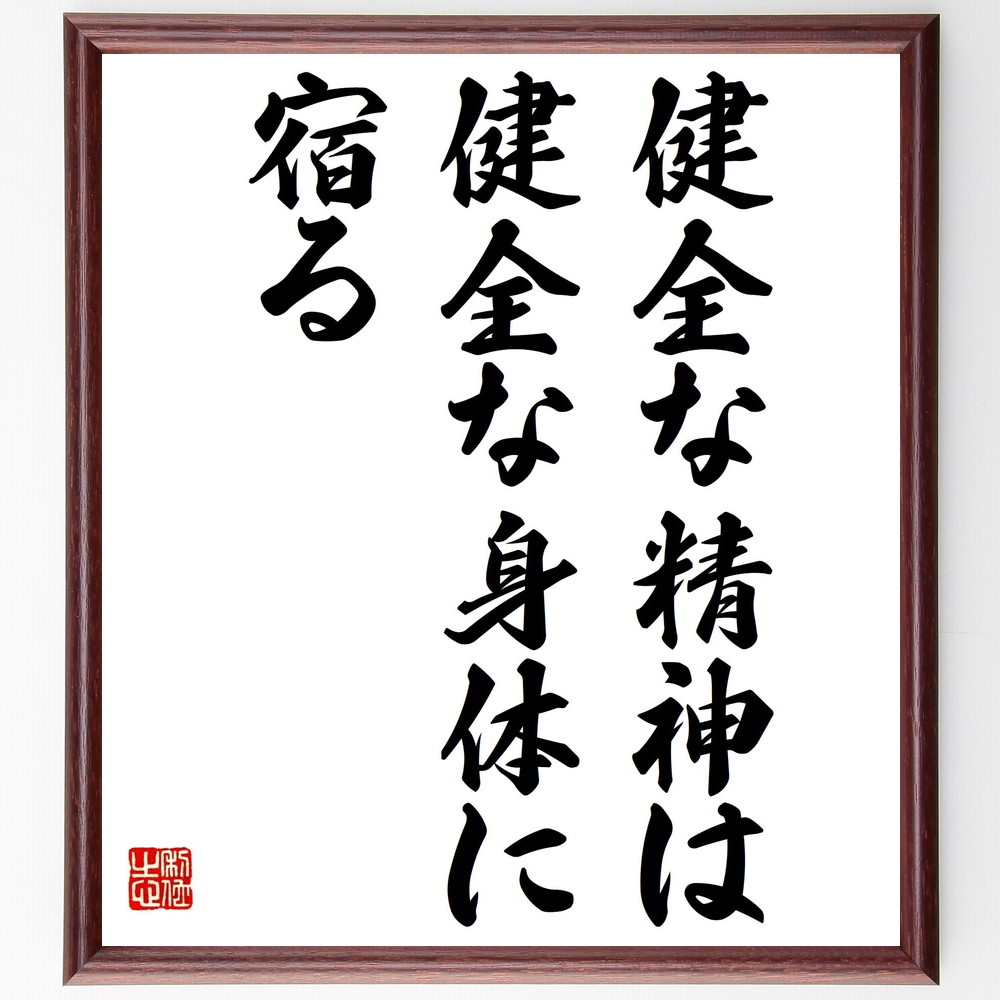 健全な精神は
健全な身体に
宿る